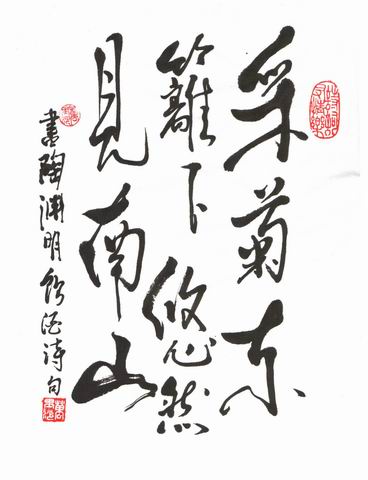 采菊东
篱下悠然
見南山
書陶渊明饮酒诗句